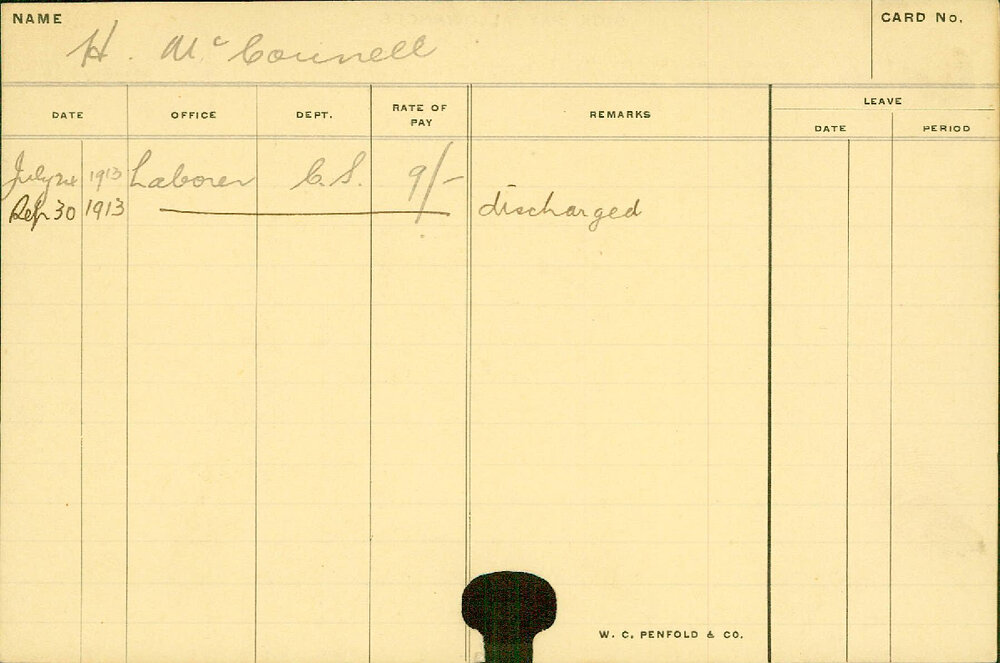 NAME H. McConnell CARD No.
DATE OFFICE DEPT. RATE OF PAY REMARKS LEAVE
DATE PERIOD
July 24 1913 Laborer C.S. 9/-
Sep 30 1913 discharged
W. C. PENFOLD & CO.